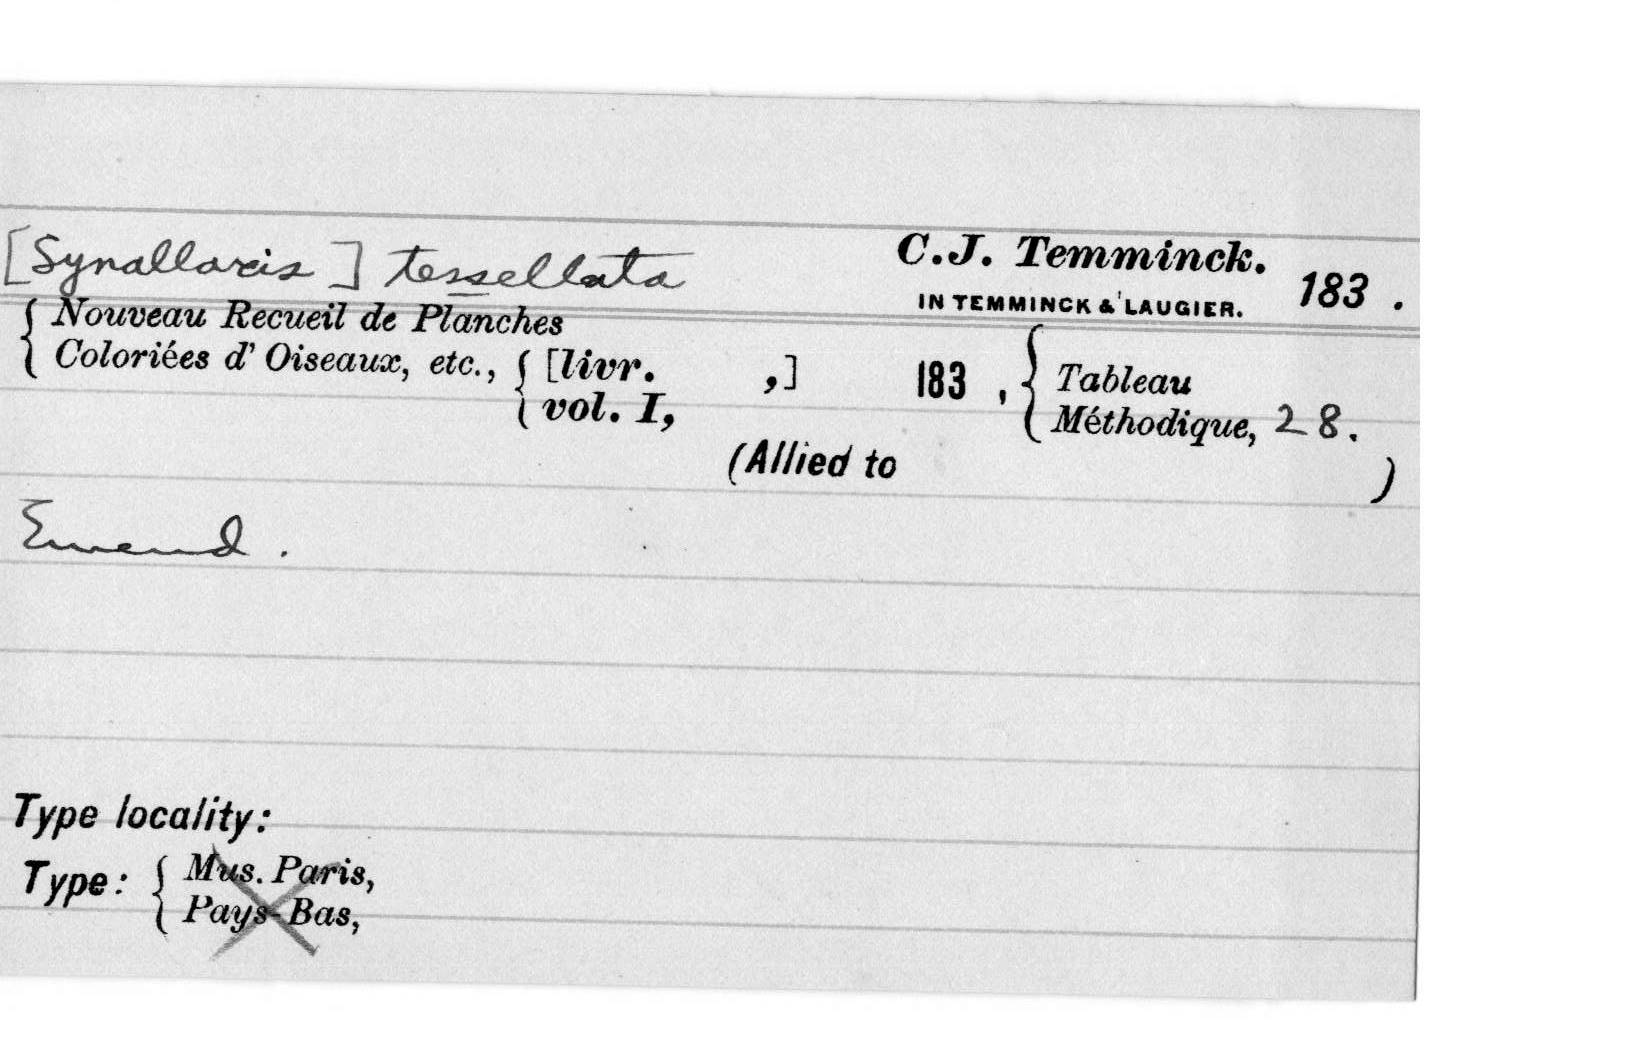 [Synallaxis] tessellata C.J. Temminck. 183 .
IN TEMMINCK & LAUGIER.
{ Nouveau Recueil de Planches
Coloriées d' Oiseaux, etc., { [livr. ,] 183 , { Tableau
vol. I, Méthodique, 28.
(Allied to )
Emend.
Type locality:
Type: { Mus. Paris,
Pays-Bas,